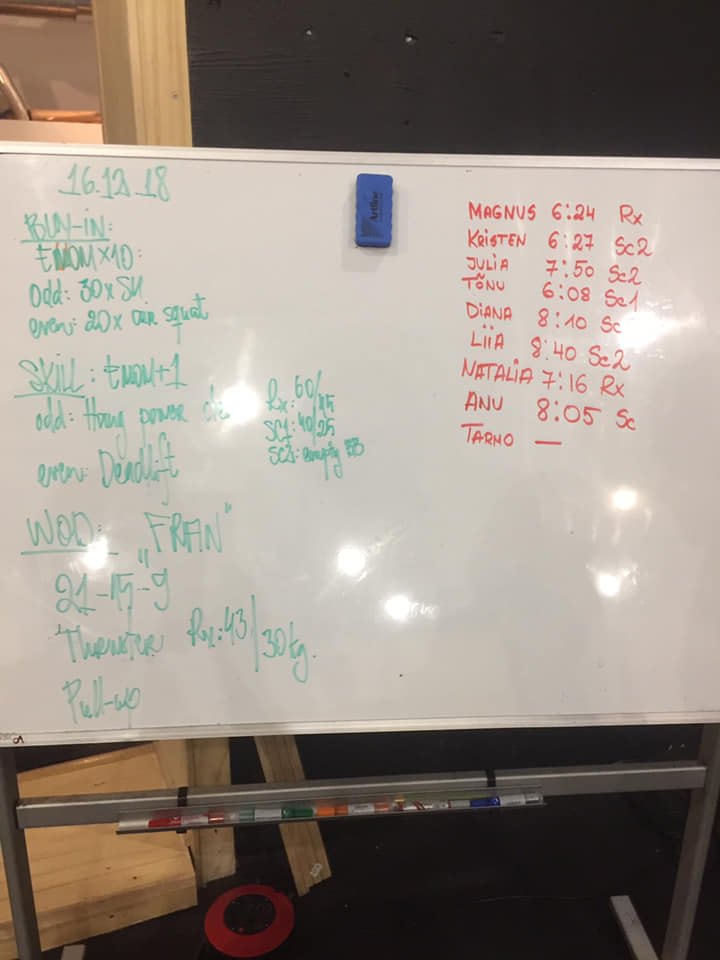 16.12.18
BUY-IN:
EMOM x10:
odd: 30x SU
even: 20x air squat
SKILL: EMOM+1
odd: Hang power
Rx: 60/
SC1: 40/25
SC2: empty
even: Deadlift
WOD: „FRAN"
21-15-9
Thruster Rx: 43/30kg.
Pull-up
Artline
MAGNUS 6:24 Rx
KRISTEN 6:27 Sc2
JULIA 7:50 Sc2
TÕNU 6:08 Sc1
DIANA 8:10
LIIA 8:40 Sc2
NATALIA 7:16 Rx
ANU 8:05 Sc
TARMO —